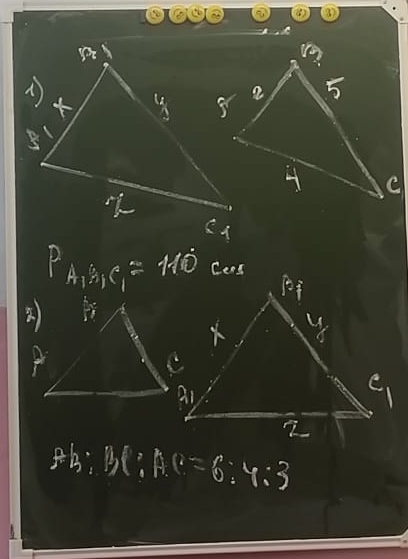 1)
B1
x
y
A1
z
C1
B
2
5
4
C
P A1B1C1 = 110 см
2)
A
C
x
y
A1
C1
z
AB : BC : AC = 6 : 4 : 3